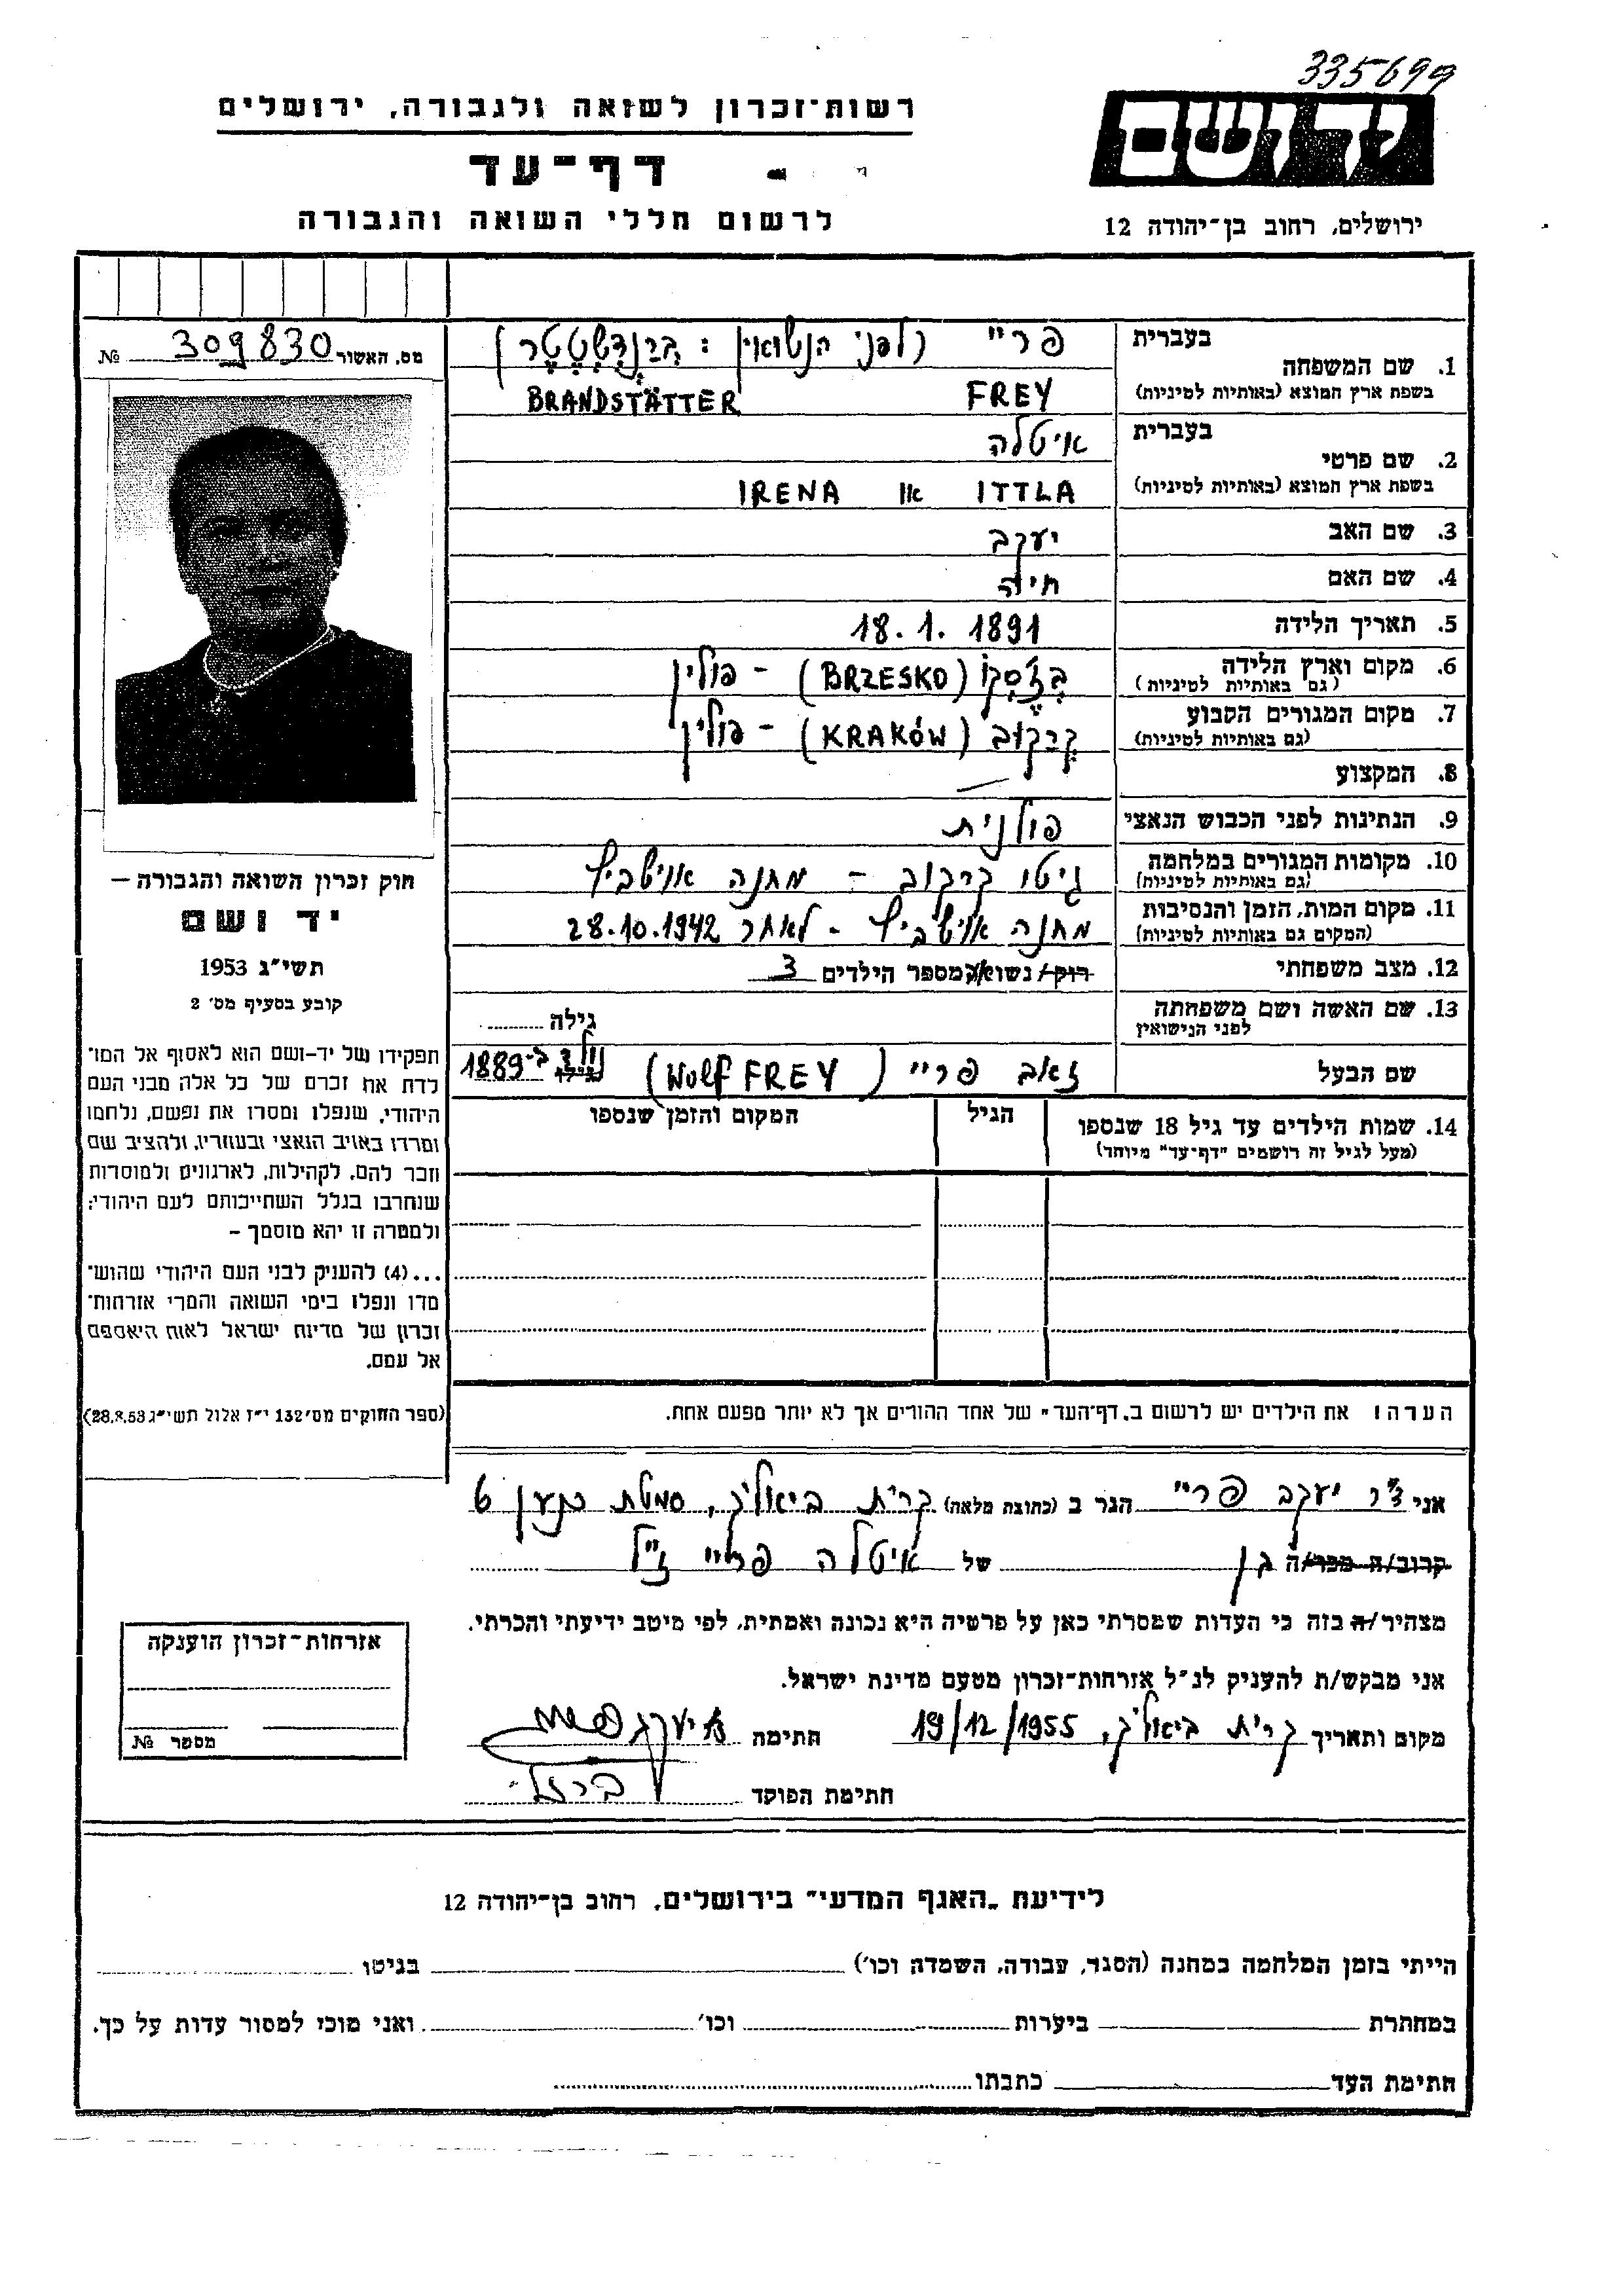 335699
רשות־זכרון לשואה ולגבורה, ירושלים
יד ושם
דף־עד
לרשום חללי השואה והגבורה
ירושלים, רחוב בן־יהודה 12
מס. האשור 309830 №
1. שם המשפחה בעברית פריי (לפני הנשואין: בְּרַנְדְשְׁטֶטֶר)
בשפת ארץ המוצא (באותיות לטיניות) FREY BRANDSTÄTTER
2. שם פרטי בעברית איטלה
בשפת ארץ המוצא (באותיות לטיניות) ITTLA או IRENA
3. שם האב יעקב
4. שם האם חיה
5. תאריך הלידה 18.1.1891
6. מקום וארץ הלידה בְּזֶ'סְקוֹ (BRZESKO) – פולין
(גם באותיות לטיניות)
7. מקום המגורים הקבוע קְרַקוּב (KRAKÓW) – פולין
(גם באותיות לטיניות)
8. המקצוע —
9. הנתינות לפני הכבוש הנאצי פולנית
10. מקומות המגורים במלחמה גיטו קרקוב – מחנה אושביץ
(גם באותיות לטיניות)
11. מקום המות, הזמן והנסיבות מחנה אושביץ – לאחר 28.10.1942
(המקום גם באותיות לטיניות)
12. מצב משפחתי רוק/נשוא/ה מספר הילדים 3
13. שם האשה ושם משפחתה
לפני הנישואין
גילה
שם הבעל זאב פריי (Wolf FREY) נולד ב־1889
14. שמות הילדים עד גיל 18 שנספו הגיל המקום והזמן שנספו
(מעל לגיל זה רושמים "דף־עד" מיוחד)
חוק זכרון השואה והגבורה —
יד ושם
תשי"ג 1953
קובע בסעיף מס' 2
תפקידו של יד־ושם הוא לאסוף אל המו־
לדת את זכרם של כל אלה מבני העם
היהודי, שנפלו ומסרו את נפשם, נלחמו
ומרדו באויב הנאצי ובעוזריו, ולהציב שם
וזכר להם, לקהילות, לארגונים ולמוסדות
שנחרבו בגלל השתייכותם לעם היהודי;
ולמטרה זו יהא מוסמך –
...(4) להעניק לבני העם היהודי שהוש־
מדו ונפלו בימי השואה והמרי אזרחות־
זכרון של מדינת ישראל לאות היאספם
אל עמם.
(ספר החוקים מס' 132 י"ז אלול תשי"ג 28.8.53)
הערה: את הילדים יש לרשום ב"דף־העד" של אחד ההורים אך לא יותר מפעם אחת.
אני ד"ר יעקב פריי הגר ב (כתובת מלאה) קרית ביאליק, סמטת כנען 6
קרוב/ה מכר/ה בן של איטלה פריי ז"ל
מצהיר/ה בזה כי העדות שמסרתי כאן על פרטיה היא נכונה ואמתית, לפי מיטב ידיעתי והכרתי.
אני מבקש/ת להעניק לנ"ל אזרחות־זכרון מטעם מדינת ישראל.
מקום ותאריך קרית ביאליק, 19/12/1955 חתימה
חתימת הפוקד
אזרחות־זכרון הוענקה
מספר №
לידיעת "האגף המדעי" בירושלים, רחוב בן־יהודה 12
הייתי בזמן המלחמה במחנה (הסגר, עבודה, השמדה וכו') בגיטו
במחתרת ביערות וכו' ואני מוכן למסור עדות על כך.
חתימת העד כתבתו